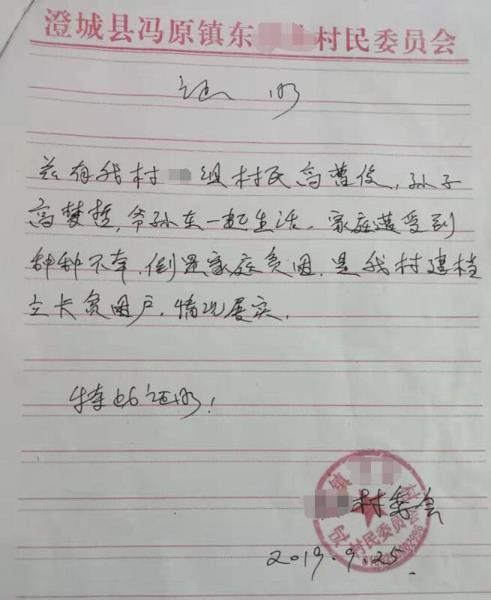 澄城县冯原镇东 村民委员会
证 明
兹有我村 组村民高曹俊,孙子
高梦哲,爷孙在一起生活。家庭遭受到
种种不幸,倒置家庭贫困,是我村建档
立卡贫困户,情况属实,
特此证明!
村委会
2019.9.25.
镇 村
村民委员会